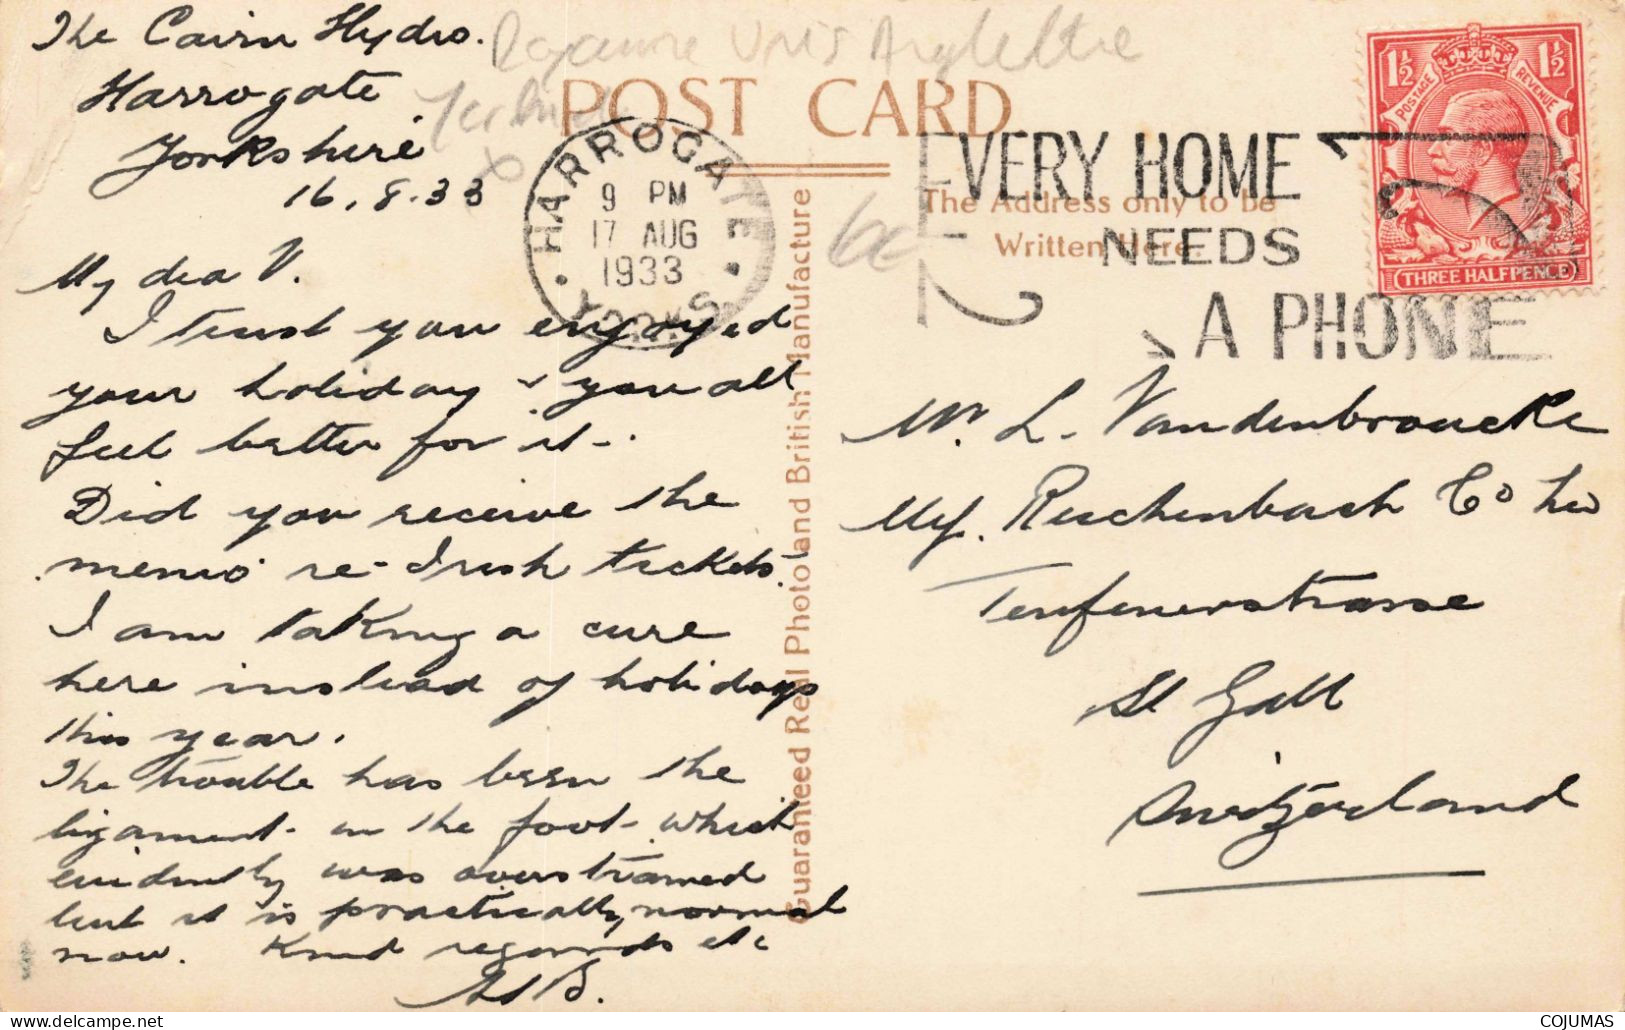 The Cairn Hydro.
Harrogate
Yorkshire
16.8.33
My dea V.
I trust you enjoyed
your holiday & you all
feel better for it.
Did you receive the
memo re-Irish tickets.
I am taking a cure
here instead of holidays
this year.
The trouble has been the
ligament in the foot which
evidently was overstrained
but it is practically normal
now. Kind regards etc
Royaume Unis Angleterre
POST CARD
HARROGATE
9 PM
17 AUG
1933
YORKS
EVERY HOME
NEEDS
A PHONE
The Address only to be
Written Here.
POSTAGE REVENUE
1½ 1½
THREE HALFPENCE
Guaranteed Real Photo and British Manufacture
Mr. L. Vandenbroucke
Reichenbach Co
Teufenerstrasse
St Gall
Switzerland
COJUMAS
www.delcampe.net